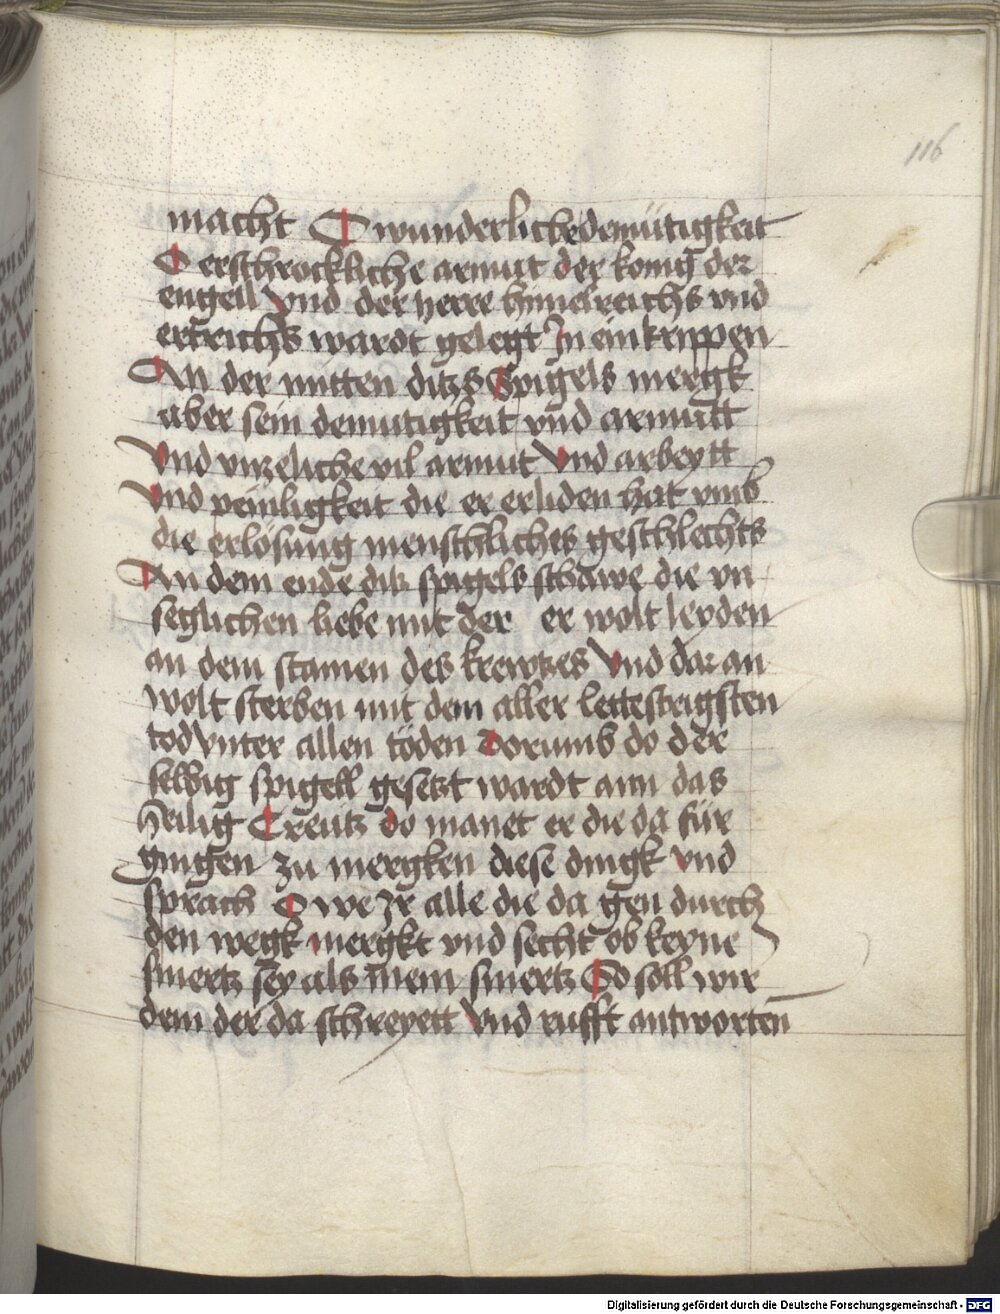 116
macht O wunderliche demütigkeit
O erschrockliche armut der konig der
engell vnd der herre himelreichs vnd
ertreichs wardt gelegt In ein krippen
An der mitten ditzs Spigels mergk
aber sein demutigkeit vnd armutt
Vnd vnzeliche vil armut Vnd arbeytt
Vnd peinligkeit die er erliden hat vmb
die erlösung menschliches geschlechts
An dem ende ditz spigels schawe die vn
seglichen liebe mit der er wolt leyden
an dem stamen des krewtzes Vnd dar an
wolt sterben mit dem aller lettestrigsten
tod vnter allen töden Dorumb do der
selbig spigell gesetzt wardt ann das
heilig Creütz do manet er die da für
gingen zu mergken diese dingk vnd
sprach O we Jr alle die da gen durch
den wegk mergkt vnd secht ob keyne
smertz sey als mein smertz So soll wir
dem der da schreyett Vnd rufft antworten
Digitalisierung gefördert durch die Deutsche Forschungsgemeinschaft - DFG